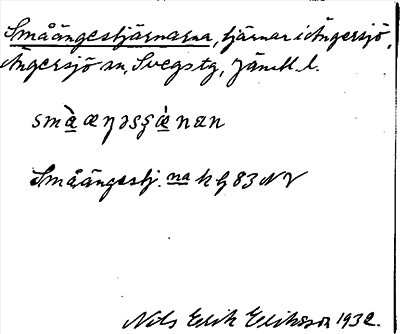 Småängestjärnarna, tjärnar i Ängersjö,
Ängersjö sn, Svegs tg, Jämtl. l.
smàæŋəsʂæ̀nɑn
Småängestj. na k G 83 NV
Nils Erik Eliksson 1932.